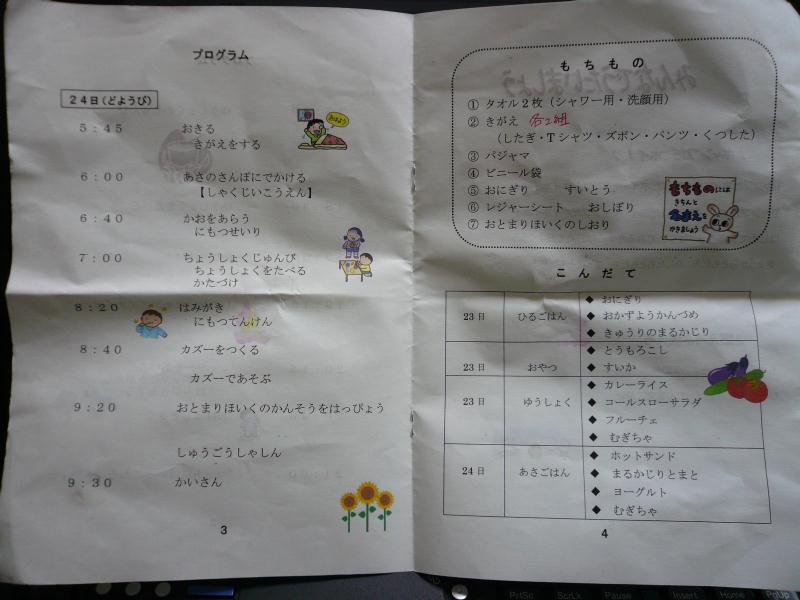 プログラム
24日(どようび)
5:45 おきる
きがえをする
おはよう
6:00 あさのさんぽにでかける
【しゃくじいこうえん】
6:40 かおをあらう
にもつせいり
7:00 ちょうしょくじゅんび
ちょうしょくをたべる
かたづけ
8:20 はみがき
にもつてんけん
8:40 カズーをつくる
カズーであそぶ
9:20 おとまりほいくのかんそうをはっぴょう
しゅうごうしゃしん
9:30 かいさん
3
もちもの
① タオル2枚(シャワー用・洗顔用)
② きがえ 各2組
(したぎ・Tシャツ・ズボン・パンツ・くつした)
③ パジャマ
④ ビニール袋
⑤ おにぎり すいとう
⑥ レジャーシート おしぼり
⑦ おとまりほいくのしおり
もちものには
きちんと
なまえを
かきましょう
こんだて
23日 ひるごはん
◆ おにぎり
◆ おかずようかんづめ
◆ きゅうりのまるかじり
23日 おやつ
◆ とうもろこし
◆ すいか
23日 ゆうしょく
◆ カレーライス
◆ コールスローサラダ
◆ フルーチェ
◆ むぎちゃ
24日 あさごはん
◆ ホットサンド
◆ まるかじりとまと
◆ ヨーグルト
◆ むぎちゃ
4
PrtSc ScrLk Pause Insert Home PgUp